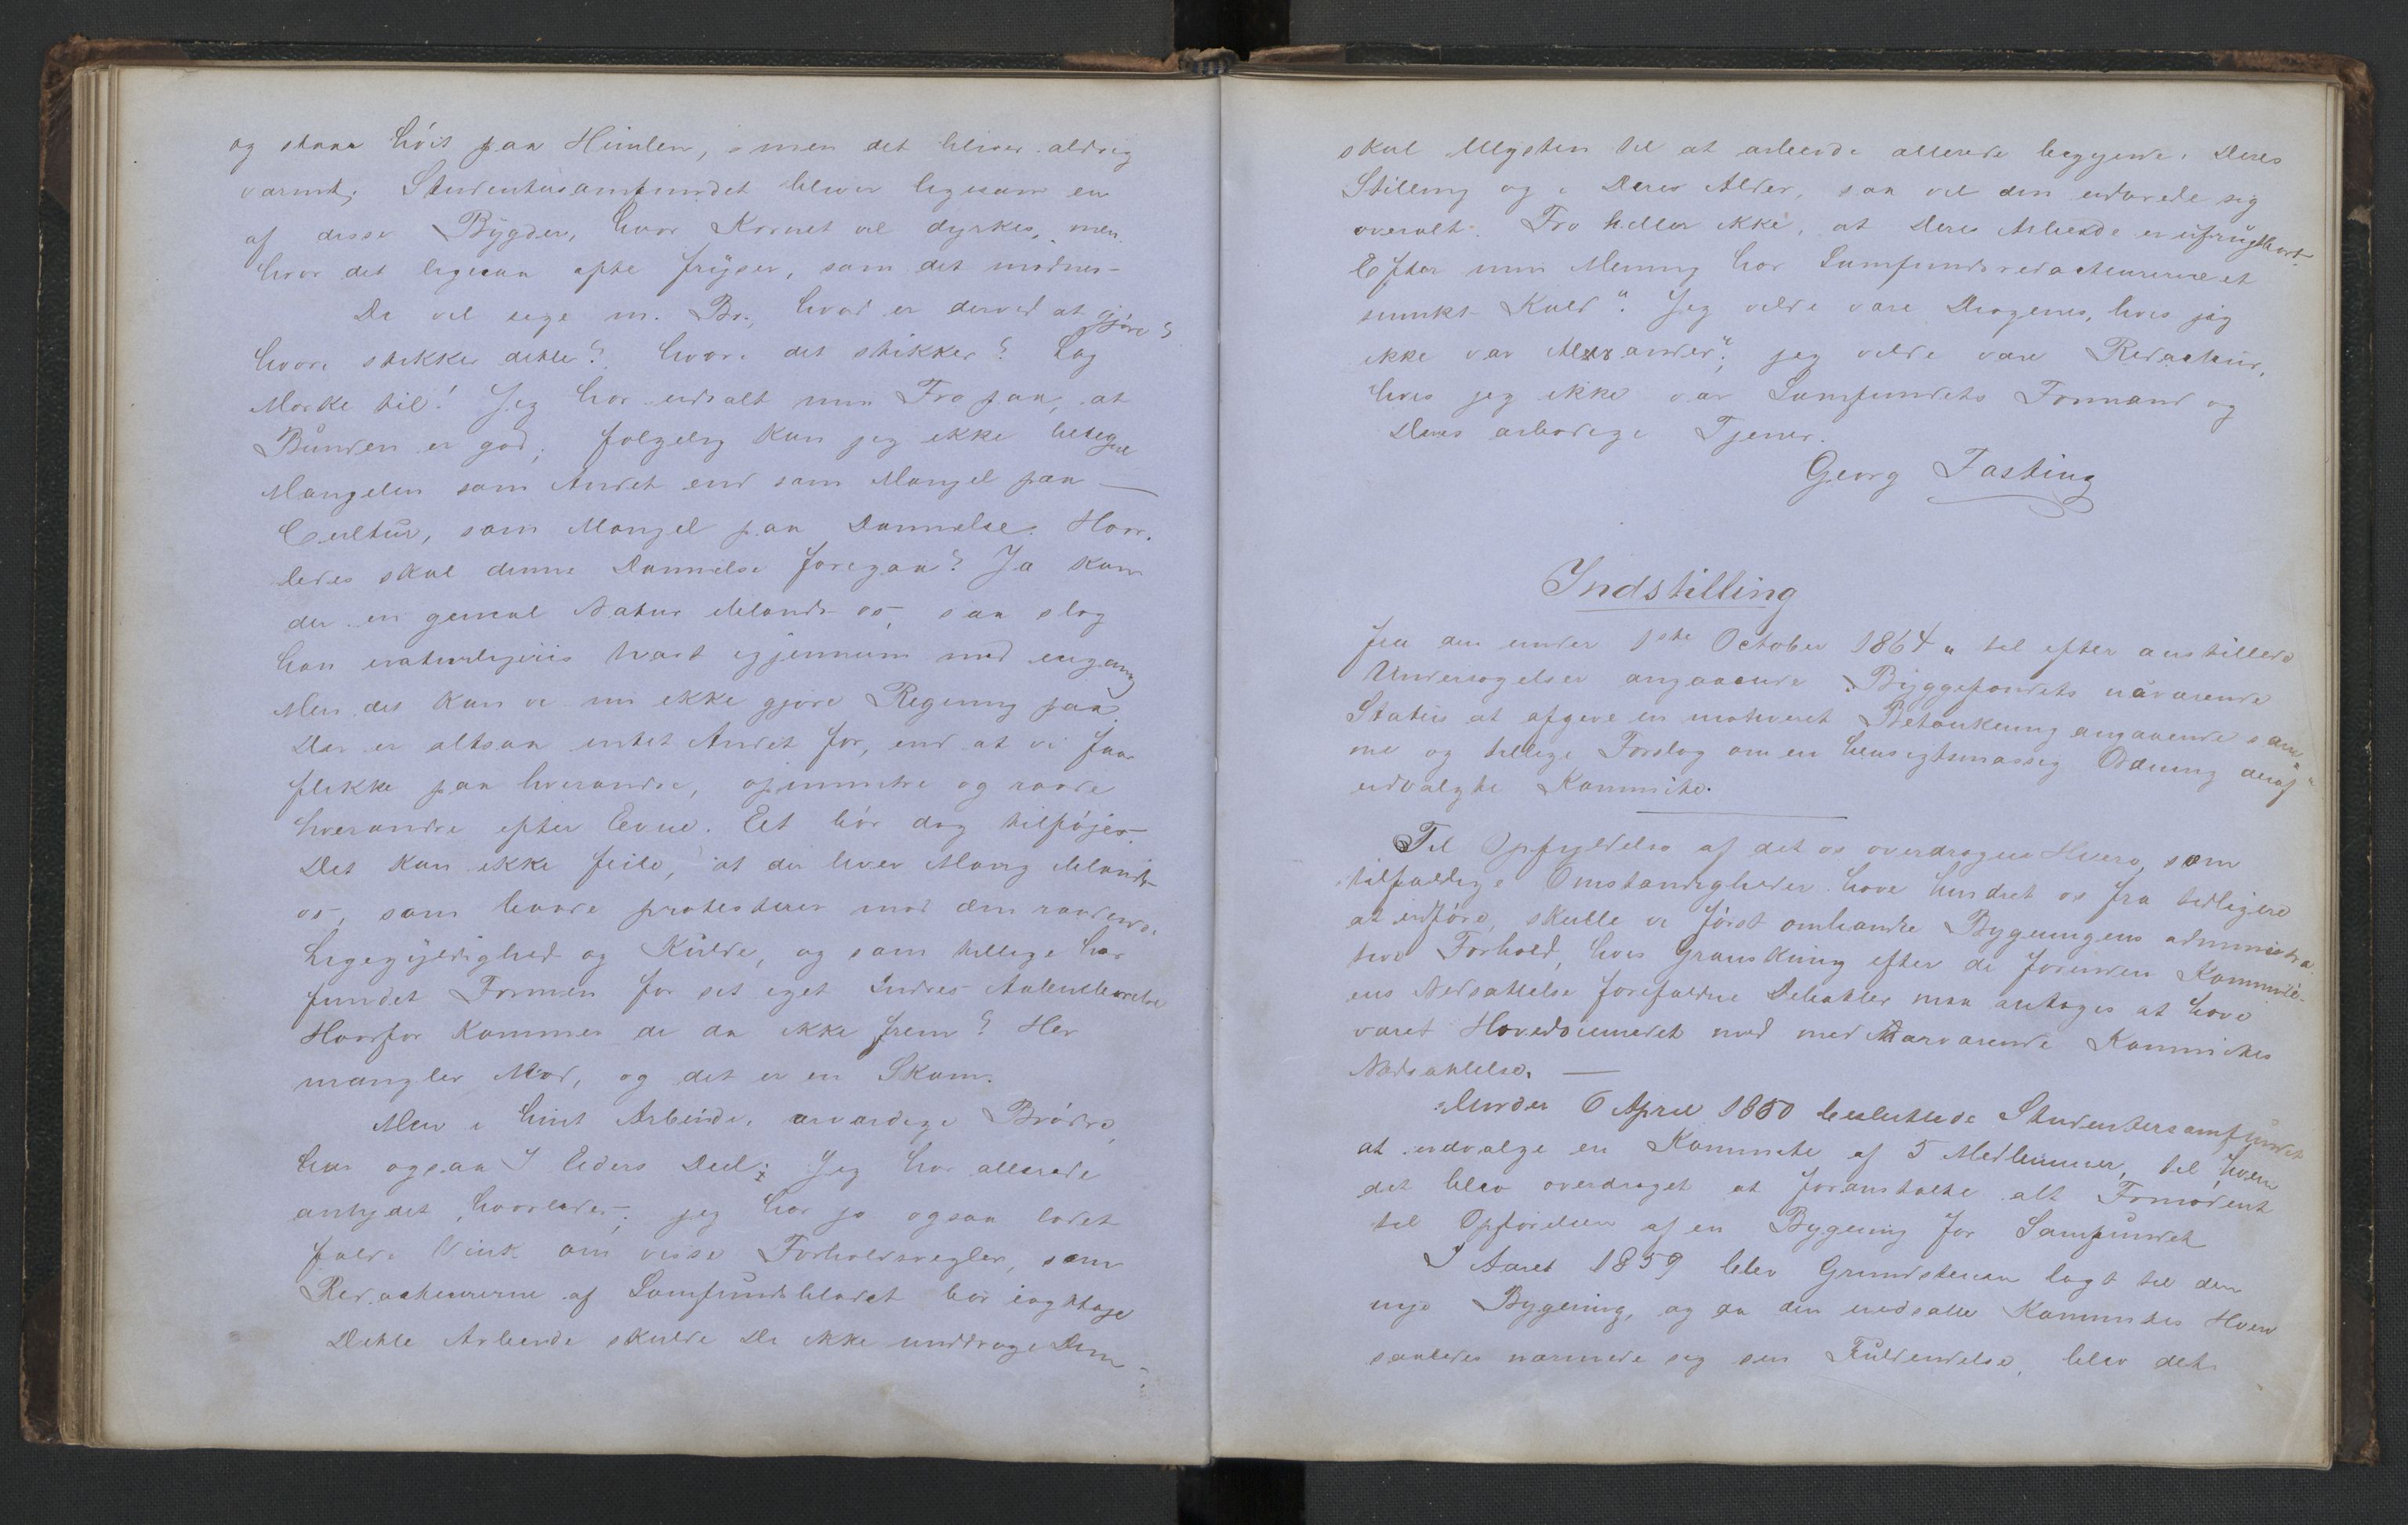 og staaa höit paa Himlen, men det bliver aldrig
varmt; Studentersamfundet bliver ligesom en
af disse Bygder, hvor Kornet vel dyrkes, men
hvor det ligesaa ofte fryser, som det modnes-
De vil sige m. Br., hvad er derved at gjöre?
hvori stikker dette? hvori det stikker? Læg
Mærke til! Jeg har udtalt min Tro paa, at
Bunden er god; følgelig kan jeg ikke betegne
Mangelen som Andet end som Mangel paa —
Cultur, som Mangel paa Dannelse. Hvor-
ledes skal denne Dannelse foregaa? Ja kom
der en genial Natur iblandt os, saa slog
han naturligviis tvært igjennem med engang
Men det kan vi nu ikke gjøre Regning paa
Der er altsaa intet Andet for, end at vi faar
flikke paa hverandre, opmuntre og raade
hverandre efter Evne. Eet bör dog tilföjes-
Det kan ikke feile, at der lever Mang iblandt
os, som baade protesterer mod den raadende
Ligegyldighed og Kulde, og som tillige har
fundet Formen for sit eget Indres Aabenbarelse
Hvorfor kommer de da ikke frem? Her
mangler Mod, og det er en Skam.
Men i hint Arbeide, ærværdige Brödre,
har ogsaa I Eders Deel; Jeg har allerede
antydet, hvorledes; jeg har jo ogsaa ladet
falde Vink om visse Forholdsregler, som
Redacteurerne af Samfundsbladet bör iagttage
Dette Arbeide skulde De ikke unddrage Dem-
skal Ulysten til at arbeide allerede begynde i Deres
Stilling og i Deres Alder, saa vil den udbrede sig
overalt. Tro heller ikke, at Deres Arbeide er ufrugtbart.
Efter min Mening har Samfundsredacteurerne et
smukt Kald". Jeg vilde være Diogenes, hvis jeg
ikke var Alexander"; jeg vilde være Redacteur,
hvis jeg ikke var Samfundets Formand og
Deres ærbødige Tjener.
Georg Fasting
Indstilling
fra den under 1ste October 1864 „ til efter anstillede
Undersøgelser angaaende Byggefondets nåværende
Status at afgive en motiveret Betænkning angaaende sam-
me og tillige Forslag om en hensigtsmæssig Ordning deraf"
udvalgte Kommite.
Til Opfyldelse af det os overdragne Hverv, som
tilfældige Omstændigheder have hindret os fra tidligere
at udføre, skulle vi först omhandle Bygningens administra-
tive Forhold, hvis Granskning efter de forinden Kommite-
ens Nedsættelse forefaldne Debatter maa antages at have
været Hovedöiemedet med med Nærværende Kommites
Nedsættelse. —
Under 6 April 1850 besluttede Studentersamfundet
at udvalge en Kommite af 5 Medlemmer, til hvem
det blev overdraget at foranstalte alt Fornødent
til Opførelsen af en Bygning for Samfundet
I Aaret 1859 blev Grundstenen lagt til den
nye Bygning, og da den nedsatte Kommites Hverv
saaledes nærmede sig sin Fuldendelse, blev det